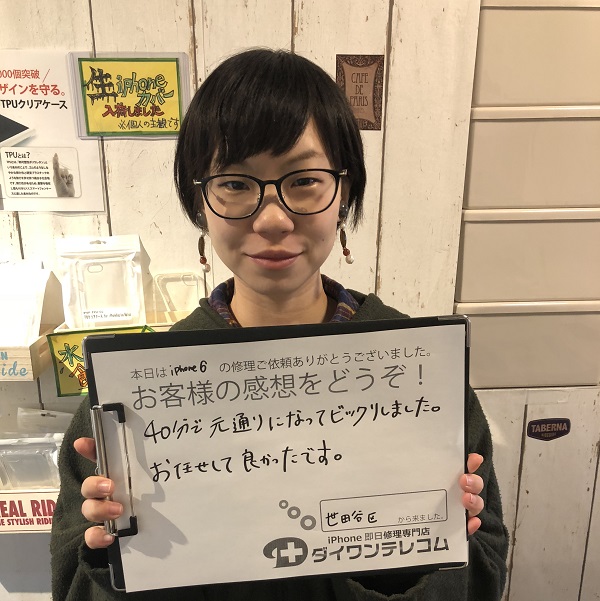 000個突破
ザインを守る。
TPUクリアケース
TPUとは?
iphone
カバー
入荷しました
※個人の主観です
CAFÉ
DE
PARIS
TABERNA
本日は iphone6 の修理ご依頼ありがとうございました。
お客様の感想をどうぞ！
40分で元通りになってビックリしました。
お任せして良かったです。
世田谷区 から来ました。
iPhone 即日修理専門店
ダイワンテレコム
EAL RID
E STYLISH RID